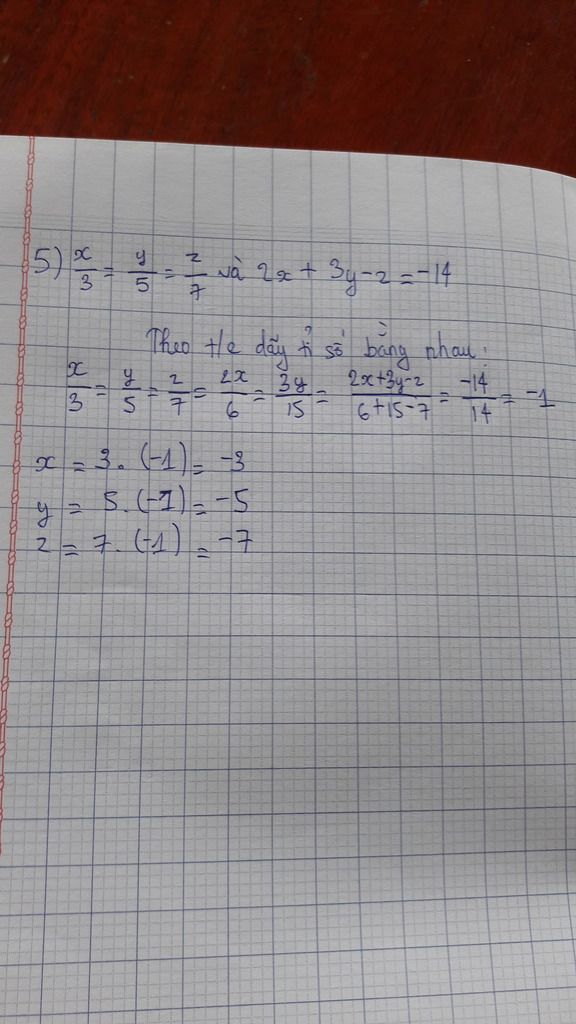 5) x/3 = y/5 = z/7 và 2x + 3y - z = -14
Theo t/c dãy tỉ số bằng nhau:
x/3 = y/5 = z/7 = 2x/6 = 3y/15 = (2x+3y-z)/(6+15-7) = -14/14 = -1
x = 3. (-1) = -3
y = 5. (-1) = -5
z = 7. (-1) = -7